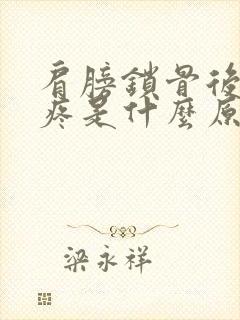 肩膀鎖骨後
疼是什麼原
梁永祥